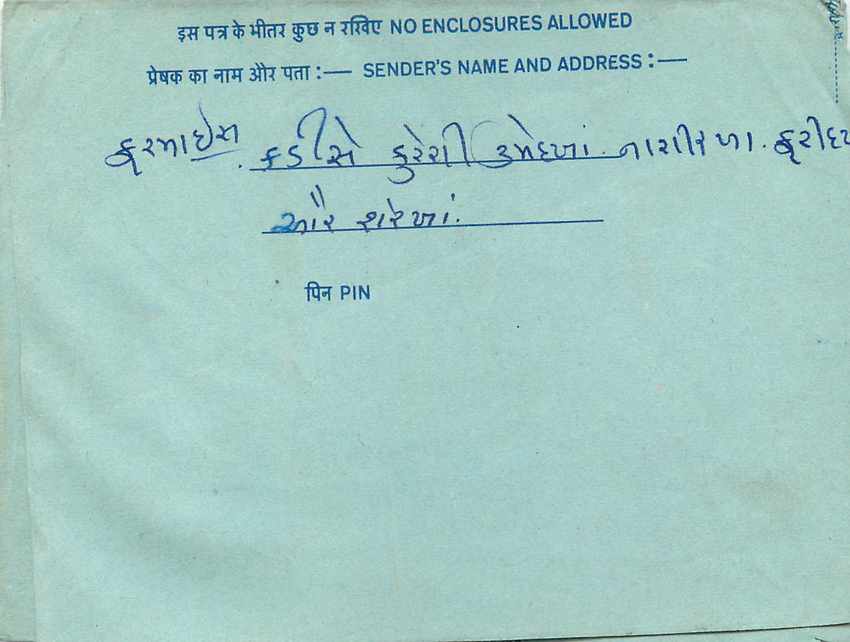 इस पत्र के भीतर कुछ न रखिए NO ENCLOSURES ALLOWED
प्रेषक का नाम और पता :— SENDER'S NAME AND ADDRESS :—
ફરમાઇસ કડીસે કુરેશી ઉમેદખાં. નાશીરખા. ફરીદખ
ઔર શેરખાં.
पिन PIN